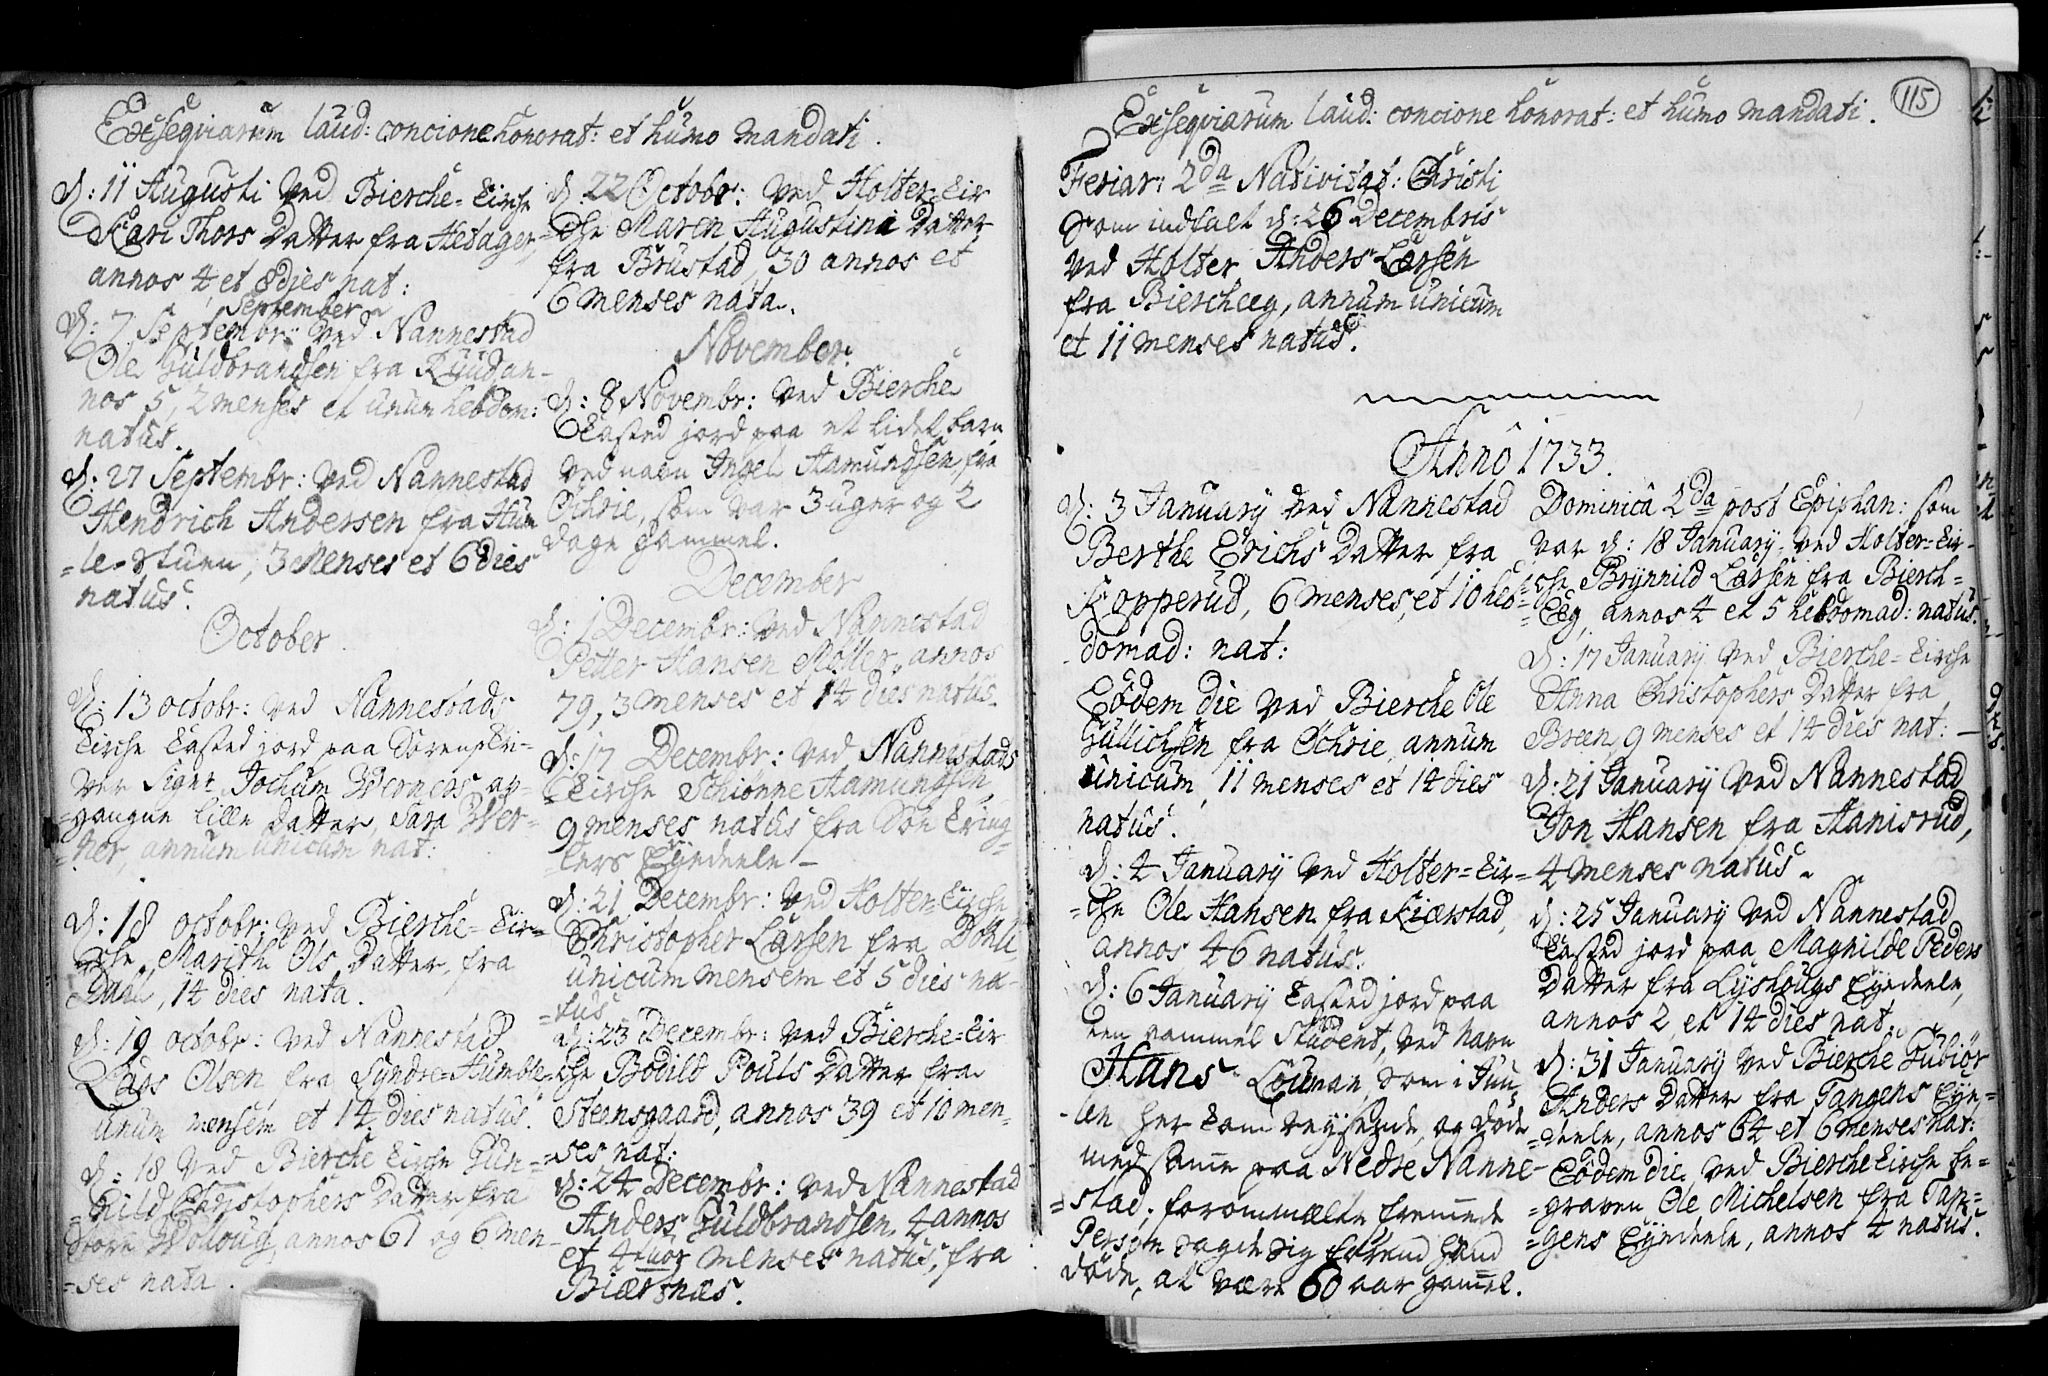 Exseqviarum laud: concione honorat: et humo mandati.
d: 11 Augusti ved Bierche-Kirche
Kari Thors Datter fra Hesager,
annos 4 et 8 dies nat:
September
d: 7 Septembr: ved Nannestad
Ole Guldbrandsen fra Ruud an-
nos 5, 2 menses et unum hebdom:
natus.
d: 27 Septembr: ved Nannestad
Hendrich Andersen fra Hum
=le-Stuen, 3 Menses et 6 dies
natus.
October.
d: 13 octobr: ved Nannestads
Kirche Kasted jord paa Sorenskri-
ver Signr Jochum Werners ap-
=gangne lille Datter, Sara Wer-
=ner, annum unicum nat:
d: 18 octobr: ved Bierche-Kir=
=che Marithe Ols Datter, fra
Dahl, 14 dies nata.
d: 19 octobr: ved Nannestad
Lars Olsen fra Syndre-Humble
unum mensem et 14 dies natus.
d: 18 ved Bierche Kirche Gun-
=hild Christophers Datter fra
Store Wolloug, annos 61 og 6 men-
=ses nata.
d: 22 Octobr: ved Holter-Kir
=che Maren Augustini Datter
fra Brustad, 30 annos et
6 menses nata.
November.
d: 8 Novembr: ved Bierche
Kasted jord paa et lidet barn
ved navn Ingel Aamundsen fra
Ochrie, som var 3 uger og 2
dage gammel.
December
d: 1 Decembr: ved Nannestad
Petter Hansen Möller, annos
79, 3 menses et 14 dies natus.
d: 17 Decembr: ved Nannestads
=Kirche Schiönne Aamundsen,
9 menses natus fra Son Kring
=lers Eyedeele -
d: 21 Decembr: ved Holter-Kirche
Christopher Larsen fra Döhli
unicum mensem et 5 dies na-
=tus
d: 23 Decembr: ved Bierche-Kir
=che Bodild Pouls Datter fra
Steensgaard, annos 39 et 10 men-
=ses nat:
d: 24 Decembr: ved Nannestad
Anders Guldbrandsen 4 annos
et 4tuor menses natus, fra
Biærtnæs.
115
Exseqviarum laud: concione honorat: et humo mandati.
Feriar: 2da Nativitat: Christi
som indfalt d: 26 Decembris
ved Holter Anders Larsen
fra Biercheeg, annum unicum
et 11 menses natus.
Anno 1733.
d: 3 January ved Nannestad
Berthe Erichs Datter fra
Kopperud, 6 menses, et 10 heb=
domad: nat:
Eodem die ved Bierche Ole
Gullichsen fra Ochrie, annum
unicum, 11 menses et 14 dies
natus.
d: 4 January ved Holter=Kir=
=che Ole Hansen fra Kierstad,
annos 46 natus.
d: 6 January Kasted jord paa
een gammel Student, ved Navn
Hans Louman, som i Juu
len her kom reysende, og döde
med samme paa Nedre Nanne-
=stad; forommelte fremmede
Person sagde sig förend hand
döde, at være 60 aar gammel.
Dominica 2da post Epiphan: som
var d: 18 January, ved Holter=Kir-
=che Brynnild Larsen fra Bierch=
=Eeg, annos 4 et 5 hebdomad: natus.
d: 17 January ved Bierche=Kirche
Anna Christophers Datter fra
Breen, 9 menses et 14 dies nat: -
d: 21 January ved Nannestad
Jon Hansen fra Hanisrud,
4 menses natus.
d: 25 January ved Nannestad
Kasted jord paa Magnilde Peders
Datter fra Lyshougs Eyedeele,
annos 2, et 14 dies nat.
d: 31 January ved Bierche Gubiör
Anders Datter fra Tangens Eye=
=deele, annos 64 et 6 menses nat:
Eodem die ved Bierche Kirche be=
=graven Ole Michelsen fra Tan=
=gens Eyedeele, annos 4 natus.